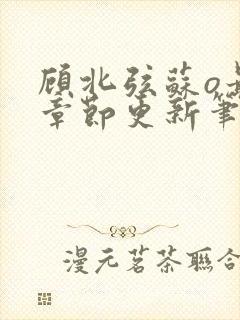 顾北弦蘇o
章節更新筆
漫元茗茶聯合